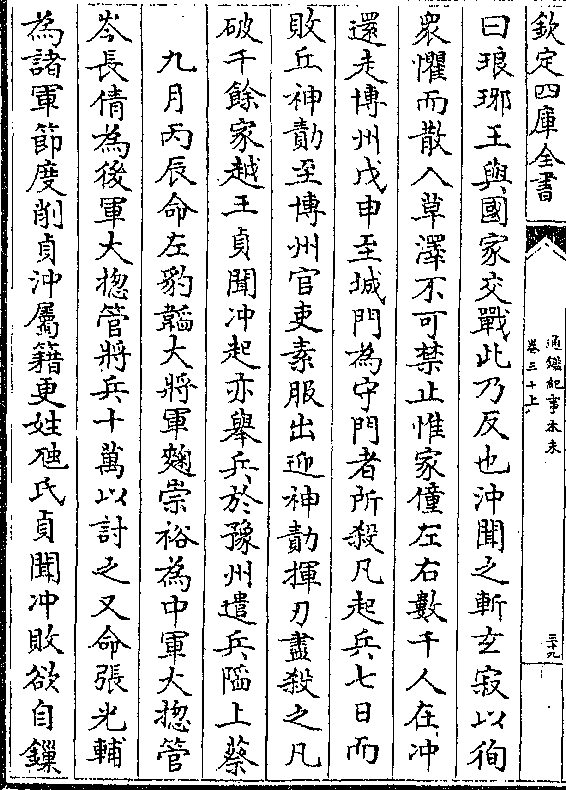 欽定四庫全書
通鑑紀事本末
卷三十上
三十九
曰琅琊王與國家交戰此乃反也沖聞之斬玄寂以徇
衆懼而散入草澤不可禁止惟家僮左右數千人在沖
還走博州戊申至城門為守門者所殺凡起兵七日而
敗丘神勣至博州官吏素服出迎神勣揮刃盡殺之凡
破千餘家越王貞聞沖起亦舉兵於豫州遣兵䧟上蔡
九月丙辰命左豹韜大將軍麴崇裕為中軍大揔管
岑長倩為後軍大揔管將兵十萬以討之又命張光輔
為諸軍節度削貞沖屬籍更姓虺氏貞聞沖敗欲自鏁